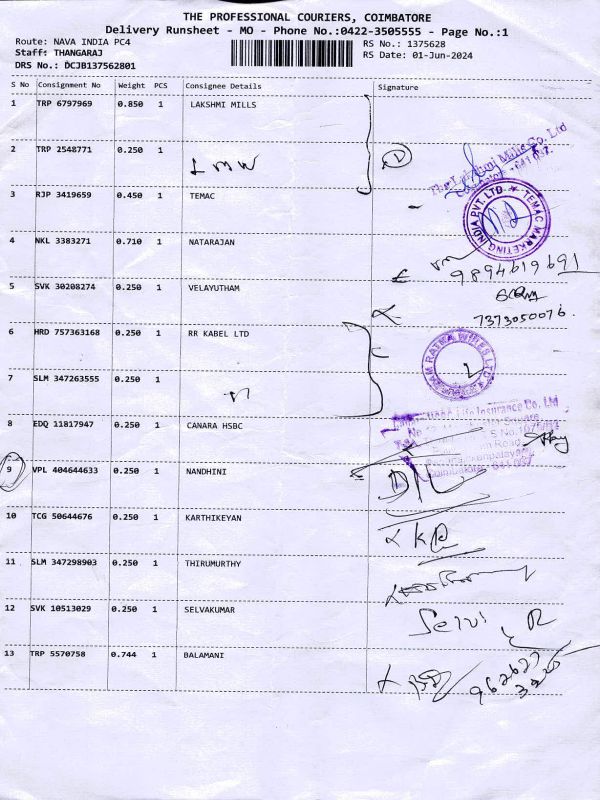 THE PROFESSIONAL COURIERS, COIMBATORE
Delivery Runsheet - MO - Phone No.:0422-3505555 - Page No.:1
Route: NAVA INDIA PC4
Staff: THANGARAJ
DRS No.: DCJB137562801
RS No.: 1375628
RS Date: 01-Jun-2024
S No Consignment No Weight PCS Consignee Details Signature
1 TRP 6797969 0.850 1 LAKSHMI MILLS
2 TRP 2548771 0.250 1
LMW
3 RJP 3419659 0.450 1 TEMAC
TEMAC MARKETING INDIA PVT. LTD
4 NKL 3383271 0.710 1 NATARAJAN
9894619691
5 SVK 30208274 0.250 1 VELAYUTHAM
7373050076.
6 HRD 757363168 0.250 1 RR KABEL LTD
RAM RATNA WIRES LTD
7 SLM 347263555 0.250 1
8 EDQ 11817947 0.250 1 CANARA HSBC
Life Insurance Co. Ltd
9 VPL 404644633 0.250 1 NANDHINI
10 TCG 50644676 0.250 1 KARTHIKEYAN
11 SLM 347298903 0.250 1 THIRUMURTHY
12 SVK 10513029 0.250 1 SELVAKUMAR
Selvi
13 TRP 5570758 0.744 1 BALAMANI